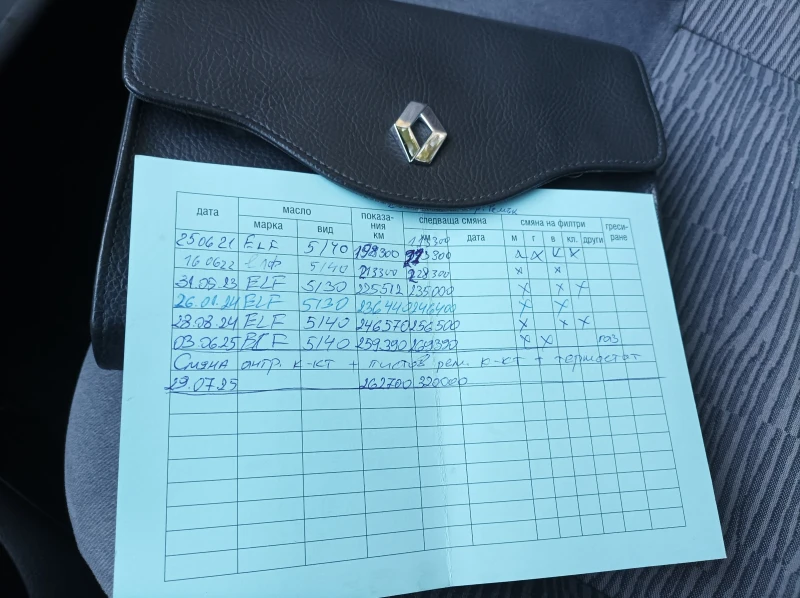 дата масло показа- следваща смяна смяна на филтри греси-
марка вид ния км дата м г в кл. други ране
км
25 06 21 ELF 5/40 198300
16 06 22 5/40 213300 228300 x x
31.05.23 ELF 5/30 225512 235000 x x x
26.01.24 ELF 5/30 236440 246400 x x
28.08.24 ELF 5/40 246570 256500 x x x
03.06.25 ELF 5/40 259.390 269390 x x газ
Смяна ангр. к-кт + пистов рем. к-кт + термостат
29.07.25 262700 320000